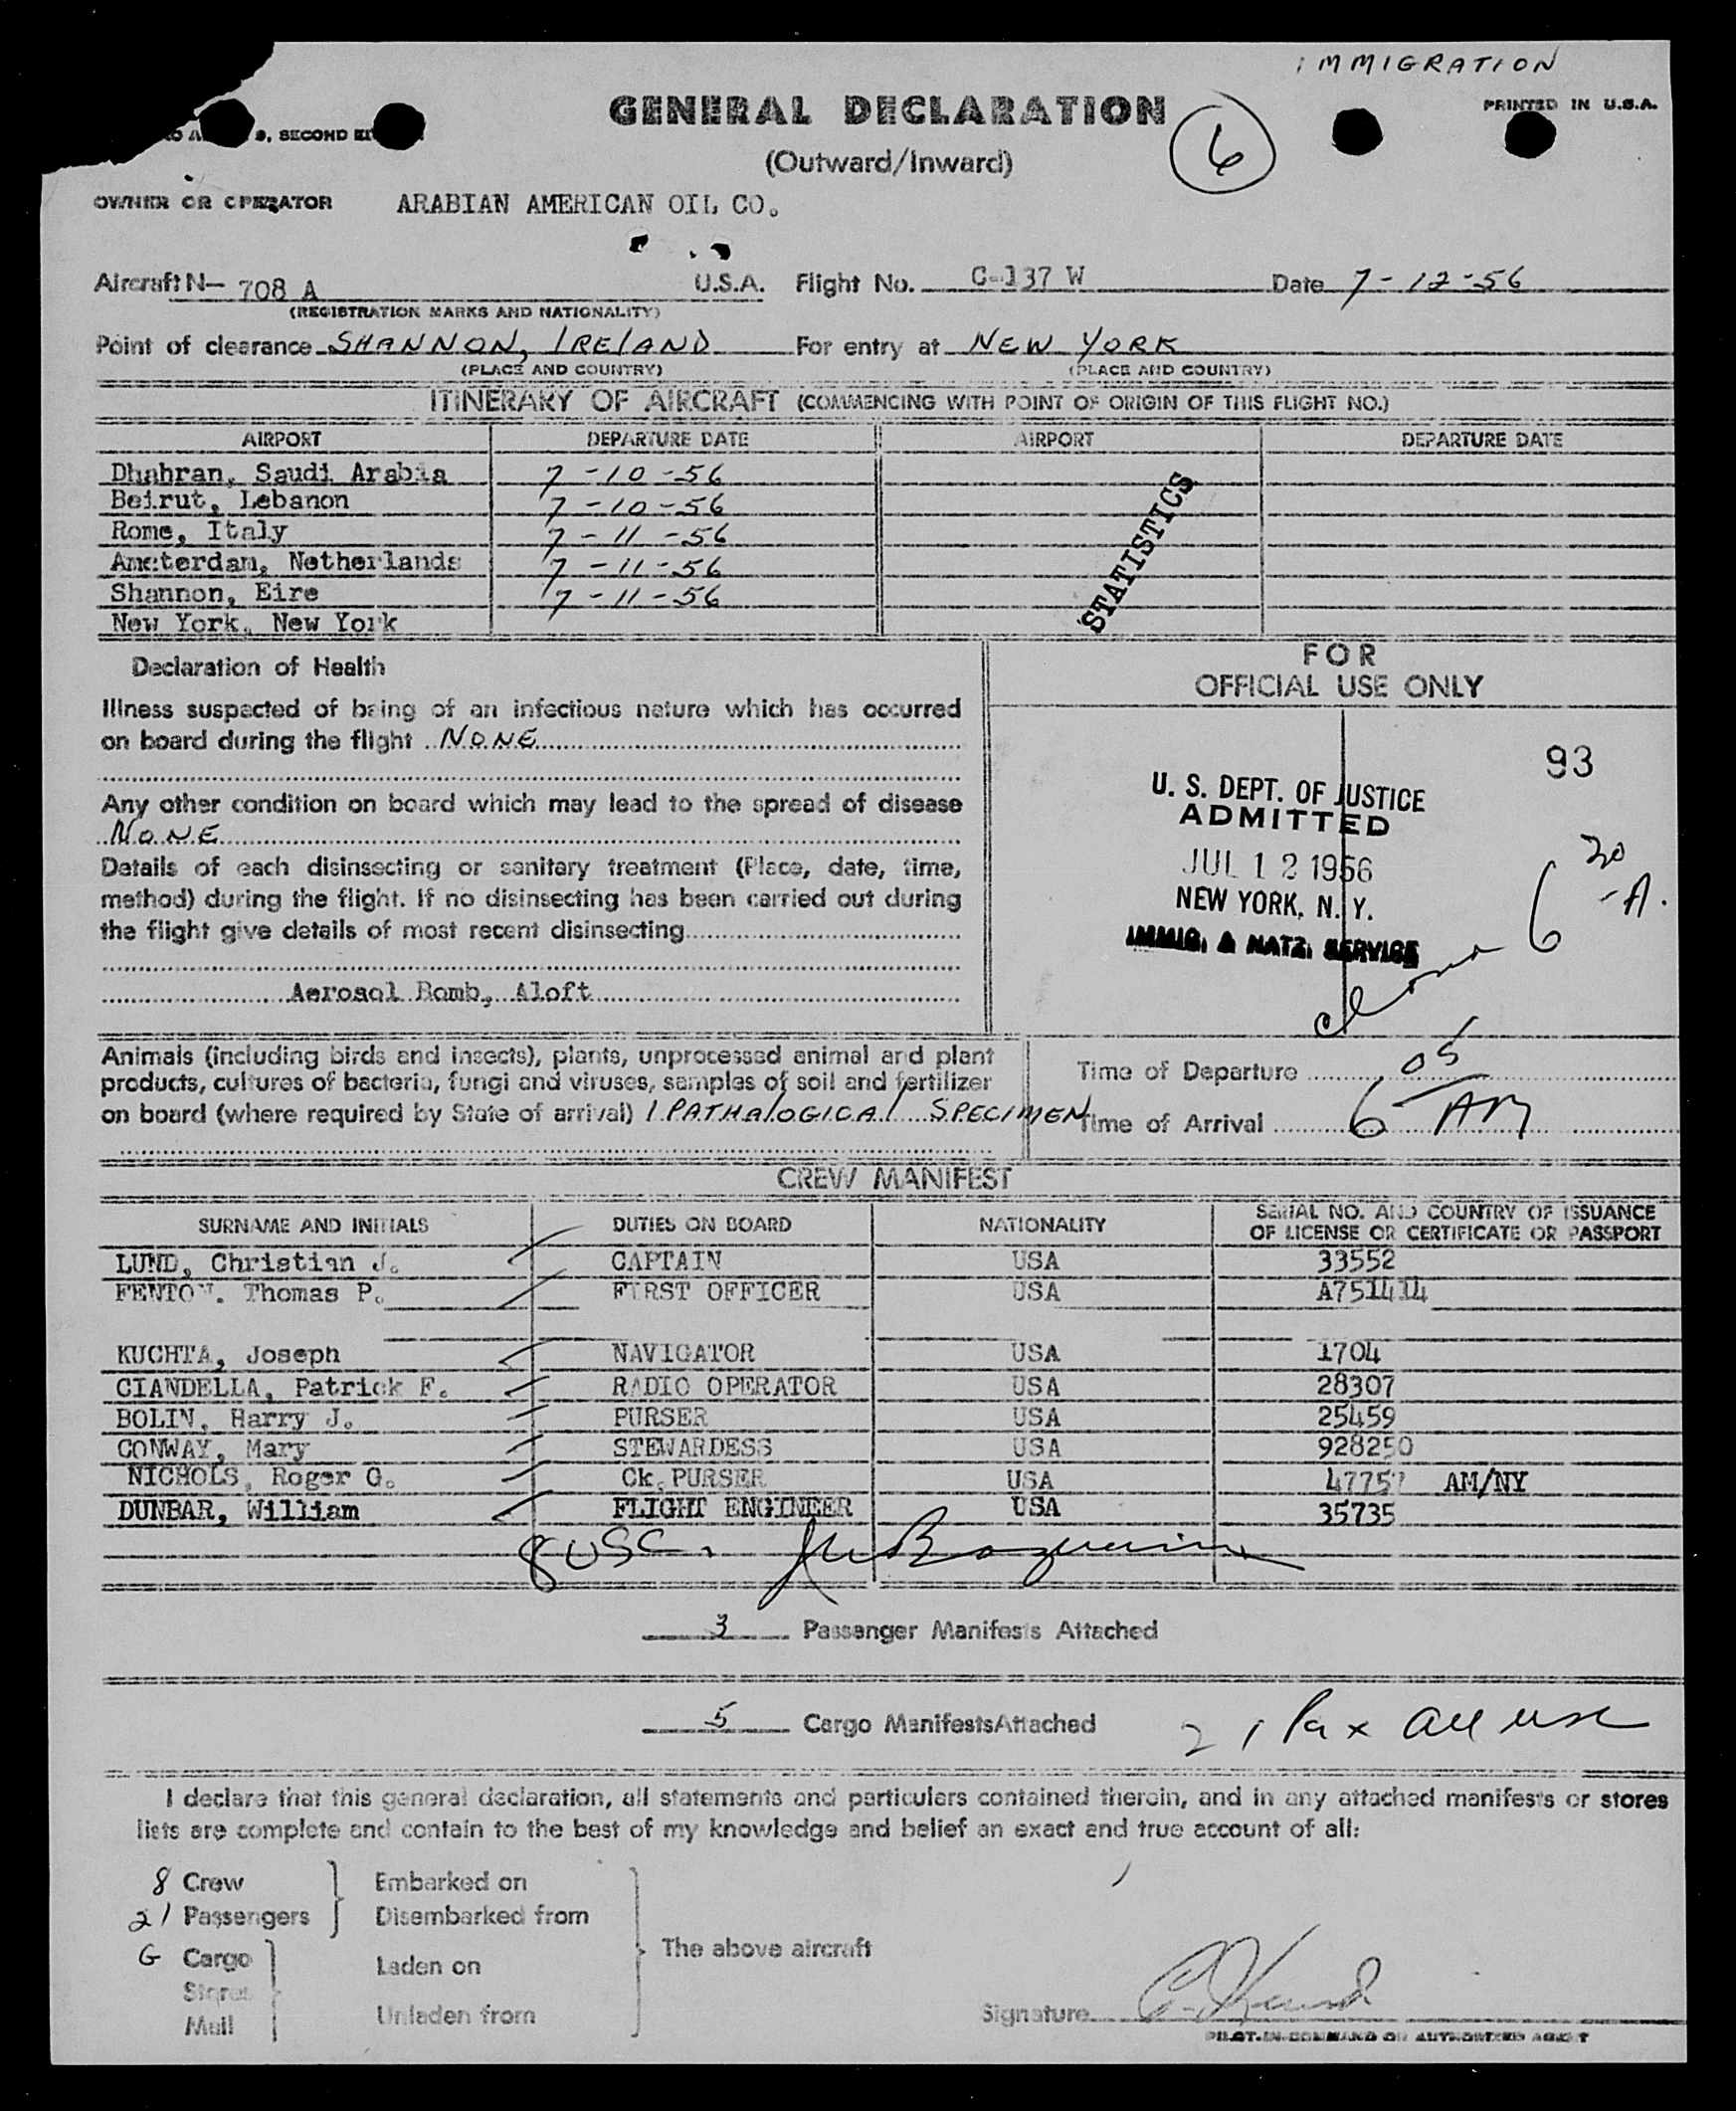 IMMIGRATION
GENERAL DECLARATION
PRINTED IN U.S.A.
9, SECOND
(Outward/Inward)
6
OWNER OR OPERATOR ARABIAN AMERICAN OIL CO.
Aircraft N- 708 A U.S.A. Flight No. C-137 W Date 7-12-56
(REGISTRATION MARKS AND NATIONALITY)
Point of clearance SHANNON, IRELAND For entry at NEW YORK
(PLACE AND COUNTRY) (PLACE AND COUNTRY)
ITINERARY OF AIRCRAFT (COMMENCING WITH POINT OF ORIGIN OF THIS FLIGHT NO.)
AIRPORT DEPARTURE DATE AIRPORT DEPARTURE DATE
Dhahran, Saudi Arabia 7-10-56
Beirut, Lebanon 7-10-56
Rome, Italy 7-11-56
Amsterdam, Netherlands 7-11-56
Shannon, Eire 7-11-56
New York, New York
STATISTICS
Declaration of Health
Illness suspected of being of an infectious nature which has occurred
on board during the flight NONE
Any other condition on board which may lead to the spread of disease
NONE
Details of each disinsecting or sanitary treatment (Place, date, time,
method) during the flight. If no disinsecting has been carried out during
the flight give details of most recent disinsecting
Aerosol Bomb, Aloft
FOR
OFFICIAL USE ONLY
93
U. S. DEPT. OF JUSTICE
ADMITTED
JUL 12 1956
NEW YORK, N. Y.
IMMIG. & NATZ. SERVICE
6 30 A.
Animals (including birds and insects), plants, unprocessed animal and plant
products, cultures of bacteria, fungi and viruses, samples of soil and fertilizer
on board (where required by State of arrival) 1 PATHALOGICAL SPECIMEN
Time of Departure
Time of Arrival 6 05 AM
CREW MANIFEST
SURNAME AND INITIALS DUTIES ON BOARD NATIONALITY SERIAL NO. AND COUNTRY OF ISSUANCE
OF LICENSE OR CERTIFICATE OR PASSPORT
LUND, Christian J. CAPTAIN USA 33552
FENTON. Thomas P. FIRST OFFICER USA A751414
KUCHTA, Joseph NAVIGATOR USA 1704
CIANDELLA, Patrick F. RADIO OPERATOR USA 28307
BOLIN, Harry J. PURSER USA 25459
CONWAY, Mary STEWARDESS USA 928250
NICHOLS, Roger G. Ck. PURSER USA 47757 AM/NY
DUNBAR, William FLIGHT ENGINEER USA 35735
8 USC.
3 Passenger Manifests Attached
5 Cargo Manifests Attached
21 Pax all usc
I declare that this general declaration, all statements and particulars contained therein, and in any attached manifests or stores
lists are complete and contain to the best of my knowledge and belief an exact and true account of all:
8 Crew
21 Passengers
Embarked on
Disembarked from
G Cargo
Stores
Mail
Laden on
Unladen from
The above aircraft
Signature
PILOT-IN-COMMAND OR AUTHORIZED AGENT